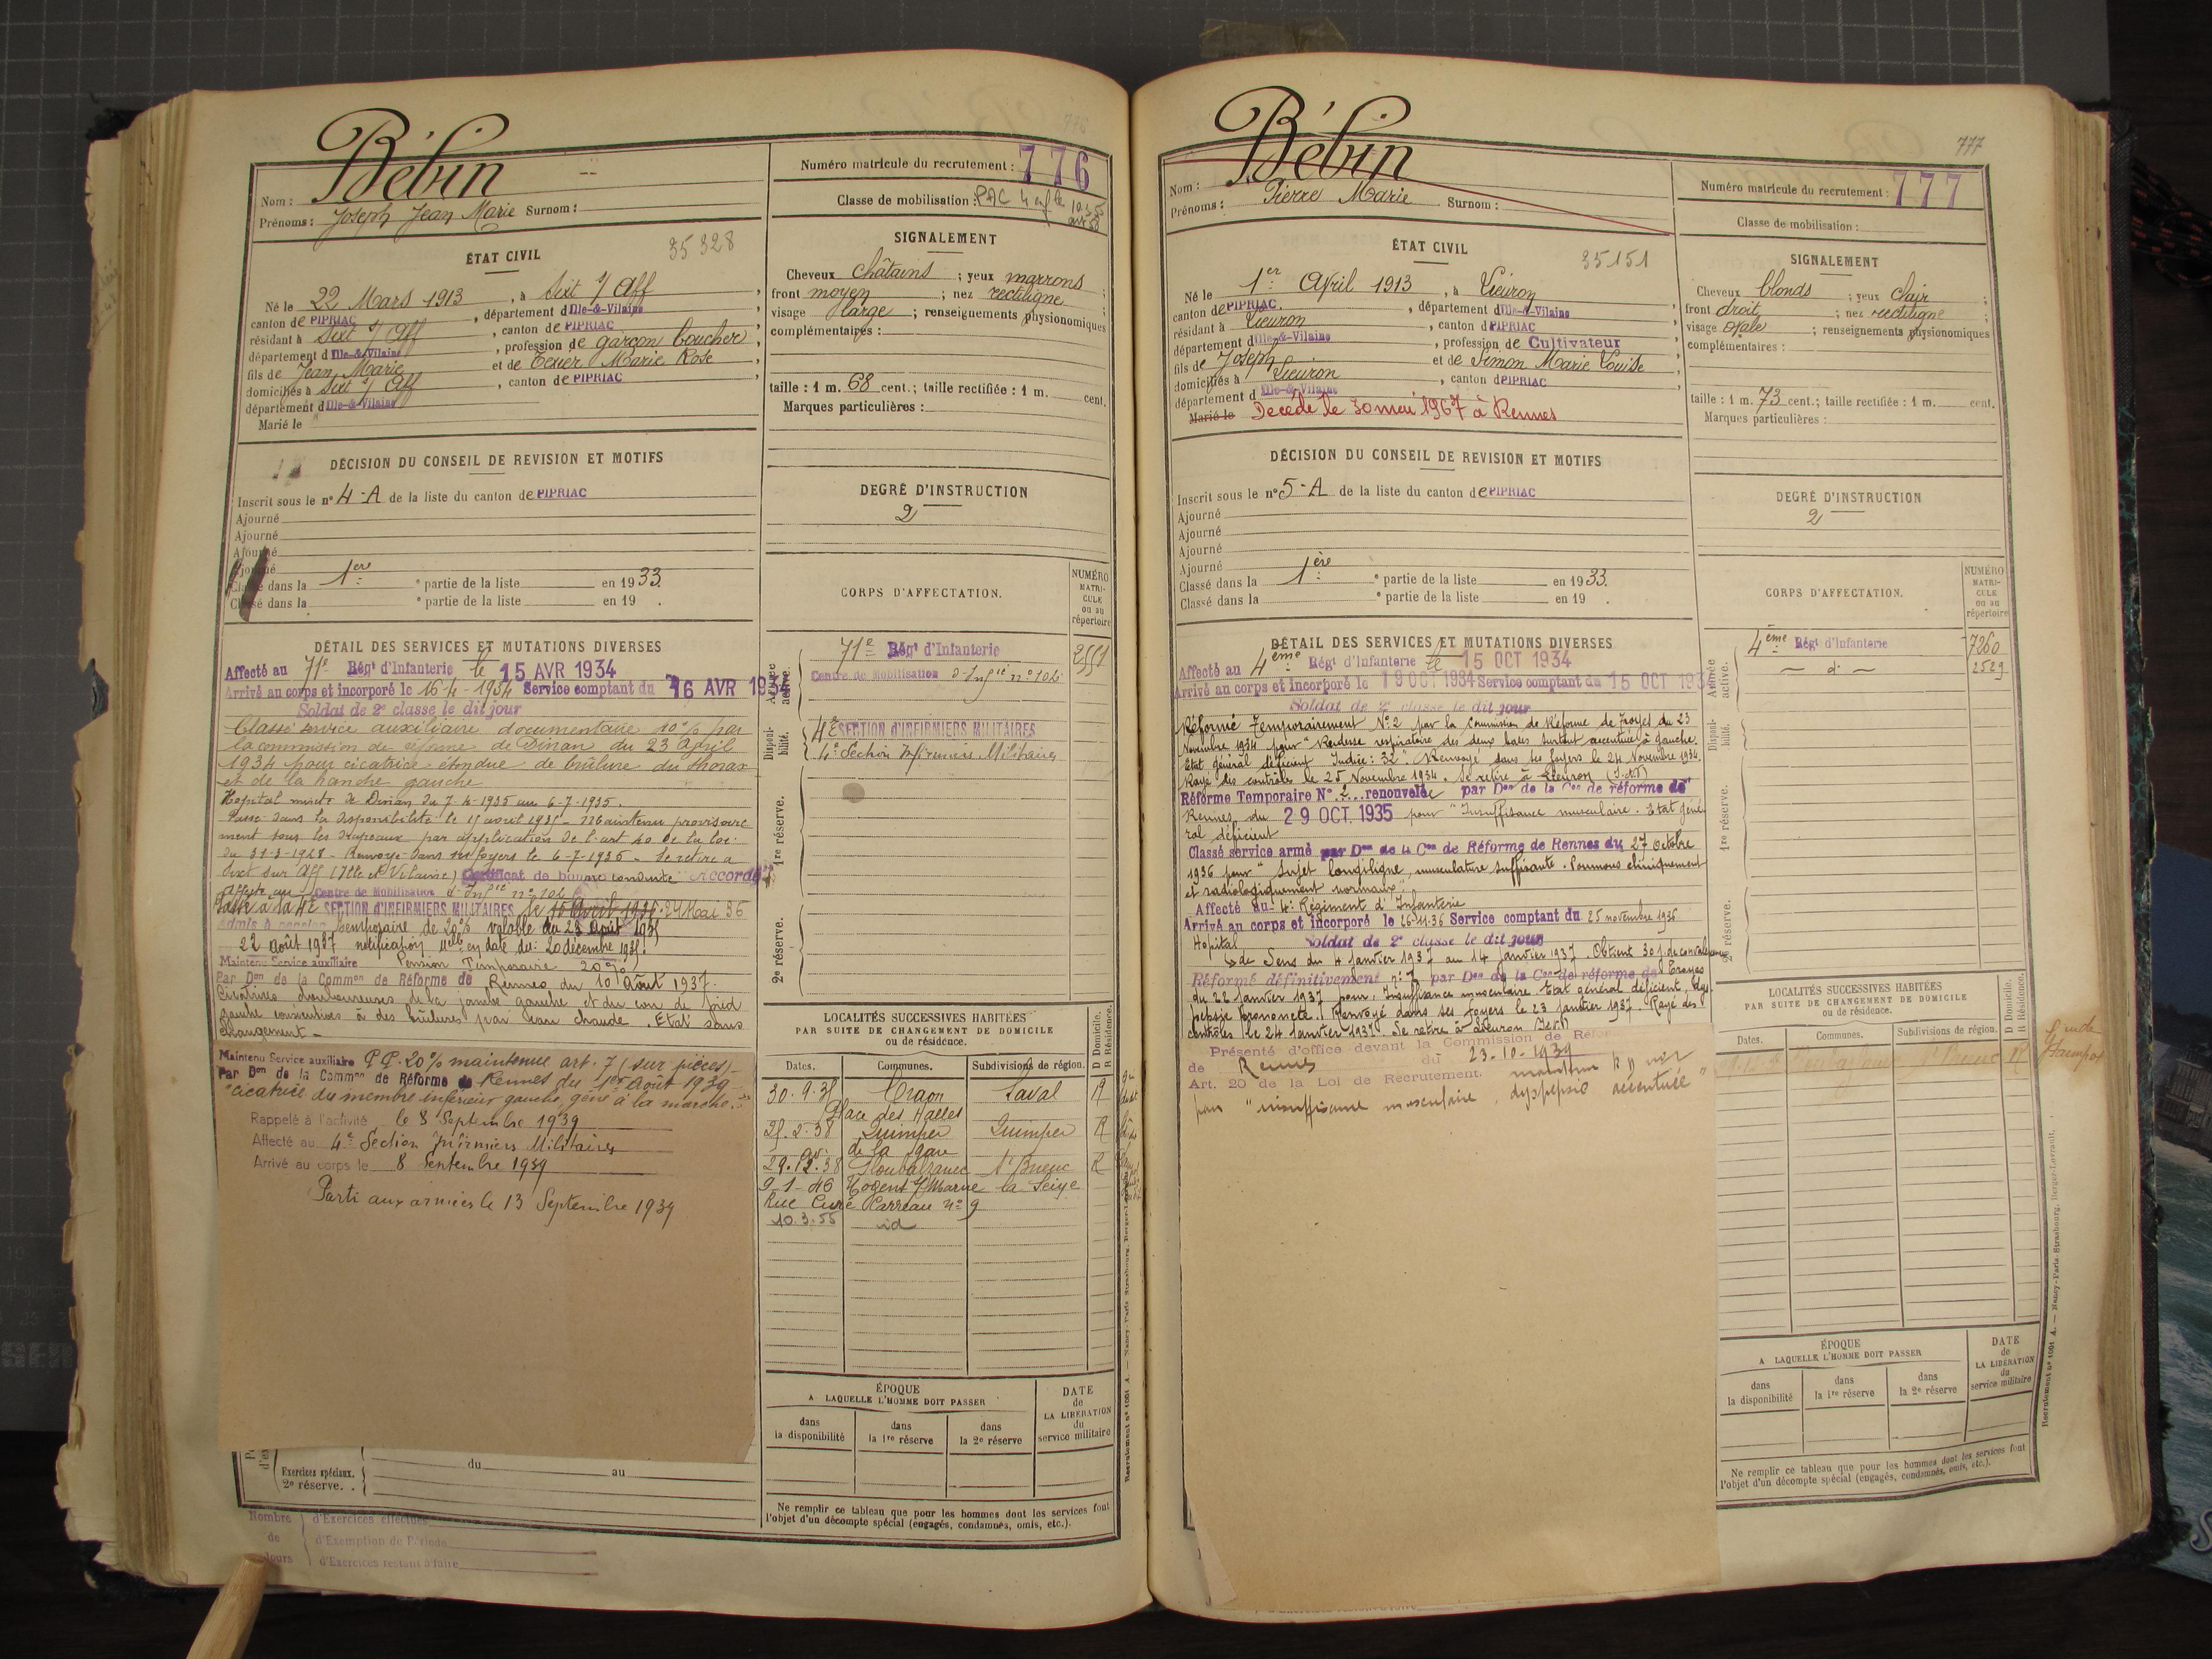 Bébin
Nom :
Prénoms : Joseph Jean Marie Surnom :
Numéro matricule du recrutement : 776
Classe de mobilisation :
ÉTAT CIVIL
35 328
Né le 22 Mars 1913, à Sixt s/ Aff,
canton de PIPRIAC, département d Ille-&-Vilaine
résidant à Sixt s/ Aff, canton de PIPRIAC
département d Ille-&-Vilaine, profession de garçon boucher,
fils de Jean Marie et de Texier Marie Rose,
domiciliés à Sixt s/ Aff, canton de PIPRIAC,
département d Ille-&-Vilaine
Marié le
SIGNALEMENT
Cheveux châtains ; yeux marrons ;
front moyen ; nez rectiligne ;
visage large ; renseignements physionomiques
complémentaires :
taille : 1 m. 68 cent.; taille rectifiée : 1 m. cent.
Marques particulières :
DÉCISION DU CONSEIL DE REVISION ET MOTIFS
Inscrit sous le n° 4-A de la liste du canton de PIPRIAC
Ajourné
Ajourné
Ajourné
Ajourné
Classé dans la 1ere partie de la liste en 1933.
Classé dans la e partie de la liste en 19 .
DEGRÉ D'INSTRUCTION
2
CORPS D'AFFECTATION.
NUMÉRO MATRICULE ou au répertoire
Armée active.
71e Régt d'Infanterie
Centre de Mobilisation d'Infie n° 104
Disponibilité.
4e SECTION D'INFIRMIERS MILITAIRES
4e Section Infirmiers Militaires
1re réserve.
2e réserve.
DÉTAIL DES SERVICES ET MUTATIONS DIVERSES
Affecté au 71e Régt d'Infanterie le 15 AVR 1934
Arrivé au corps et incorporé le 16-4-1934 Service comptant du 16 AVR 1934
Soldat de 2e classe le dit jour
Classé service auxiliaire documentaire 10% par
la commission de réforme de Dinan du 23 April
1934 pour cicatrice étendue de brûlure du thorax
et de la hanche gauche
Hopital mixte de Dinan du 7-4-1935 au 6-7-1935.
Passé dans la disponibilité le 15 avril 1935 - Maintenu provisoire
ment sous les drapeaux par application de l'art 40 de la loi
du 31-3-1928 - Renvoyé dans ses foyers le 6-7-1935 - Se retire à
Sixt sur Aff (Ille et Vilaine) Certificat de bonne conduite "Accordé"
Affecté au Centre de Mobilisation d'Infie n° 104
Passé à la 4e SECTION D'INFIRMIERS MILITAIRES le 15 Avril 1936. 24 Mai 36
Admis à pension temporaire de 20% valable du 23 Août 1935
22 Août 1937 notification en date du: 20 décembre 1935.
Maintenu Service auxiliaire Pension Temporaire 20%
Par Don de la Common de Réforme de Rennes du 10 Août 1937.
Cicatrices douloureuses de la jambe gauche et du cou de pied
gauche consécutives à des brûlures par eau chaude. Etat sans
changement -
Maintenu Service auxiliaire P.P. 20% maintenue art. 7 (sur pièces)
Par Don de la Common de Réforme de Rennes du 1er Août 1939
"cicatrice du membre inférieur gauche, gêne à la marche."
Rappelé à l'activité le 8 Septembre 1939
Affecté au 4e Section Infirmiers Militaires
Arrivé au corps le 8 Septembre 1939
Parti aux armées le 13 Septembre 1939
LOCALITÉS SUCCESSIVES HABITÉES
PAR SUITE DE CHANGEMENT DE DOMICILE
ou de résidence.
D Domicile.
R Résidence.
Dates. Communes. Subdivisions de région.
30.9.35 Craon Laval R
Place des Halles
25.2.38 Quimper Quimper R
de la Gare
29.12.38 Ploubalzanec St Brieuc R
9-1-46 Nogent s/ Marne la Seine
Rue Curé Carreau n° 9
10.3.55 id
Exercices spéciaux.
2e réserve. . du au
Nombre de jours
d'Exercices effectués
d'Exemption de Période
d'Exercices restant à faire
ÉPOQUE
A LAQUELLE L'HOMME DOIT PASSER
dans la disponibilité
dans la 1re réserve
dans la 2e réserve
DATE de LA LIBÉRATION du service militaire
Ne remplir ce tableau que pour les hommes dont les services font
l'objet d'un décompte spécial (engagés, condamnés, omis, etc.).
777
Bébin
Nom :
Prénoms : Pierre Marie Surnom :
Numéro matricule du recrutement : 777
Classe de mobilisation :
ÉTAT CIVIL
35151
Né le 1er April 1913, à Lieuron,
canton de PIPRIAC, département d Ille-&-Vilaine
résidant à Lieuron, canton d PIPRIAC
département d Ille-&-Vilaine, profession de Cultivateur
fils de Joseph et de Simon Marie Louise,
domiciliés à Lieuron, canton d PIPRIAC
département d Ille-&-Vilaine
Marié le Décédé le 30 mai 1967 à Rennes
SIGNALEMENT
Cheveux blonds ; yeux clair ;
front droit ; nez rectiligne ;
visage ovale ; renseignements physionomiques
complémentaires :
taille : 1 m. 73 cent.; taille rectifiée : 1 m. cent.
Marques particulières :
DÉCISION DU CONSEIL DE REVISION ET MOTIFS
Inscrit sous le n° 5-A de la liste du canton de PIPRIAC
Ajourné
Ajourné
Ajourné
Ajourné
Classé dans la 1ère partie de la liste en 1933.
Classé dans la e partie de la liste en 19 .
DEGRÉ D'INSTRUCTION
2
CORPS D'AFFECTATION.
NUMÉRO MATRICULE ou au répertoire
Armée active.
4ème Régt d'Infanterie 7260
- d° - 2529
Disponibilité.
1re réserve.
2e réserve.
DÉTAIL DES SERVICES ET MUTATIONS DIVERSES
Affecté au 4eme Régt d'Infanterie le 15 OCT 1934
Arrivé au corps et incorporé le 19 OCT 1934 Service comptant du 15 OCT 1934
Soldat de 2e classe le dit jour
Réformé Temporairement N° 2 par la Commission de Réforme de Troyes du 23
Novembre 1934 pour "Rudesse respiratoire des deux bases surtout accentuée à gauche.
Etat général déficient Indice: 32". Renvoyé dans ses foyers le 24 Novembre 1934.
Rayé des contrôles le 25 Novembre 1934. Se retire à Lieuron (I-et-V)
Réforme Temporaire N° 2 renouvelée par Don de la Con de réforme de
Rennes du 29 OCT. 1935 pour "Insuffisance musculaire. Etat géné
ral déficient
Classé service armé par Don de la Con de Réforme de Rennes du 27 Octobre
1936 pour "Sujet longiligne, musculature suffisante. Poumons cliniquement
et radiologiquement normaux".
Affecté au 4e Régiment d'Infanterie
Arrivé au corps et incorporé le 26-11-36 Service comptant du 25 novembre 1936
Soldat de 2e classe le dit jour
Hopital de Sens du 4 janvier 1937 au 14 janvier 1937. Obtient 30 j. de convalescence
Réformé définitivement n° 2 par Don de la Con de réforme de Troyes
du 22 Janvier 1937 pour: Insuffisance musculaire. Etat général déficient, dys
pepsie prononcée. Renvoyé dans ses foyers le 23 Janvier 1937. Rayé des
contrôles le 24 Janvier 1937. Se retire à Lieuron (I-et-V)
Présenté d'office devant la Commission de Réfor
de Rennes du 23-10-1939
Art. 20 de la Loi de Recrutement. maintenu
pour "insuffisance musculaire, dyspepsie accentuée"
LOCALITÉS SUCCESSIVES HABITÉES
PAR SUITE DE CHANGEMENT DE DOMICILE
ou de résidence.
D Domicile.
R Résidence.
Dates. Communes. Subdivisions de région.
ÉPOQUE
A LAQUELLE L'HOMME DOIT PASSER
dans la disponibilité
dans la 1re réserve
dans la 2e réserve
DATE de LA LIBÉRATION du service militaire
Ne remplir ce tableau que pour les hommes dont les services font
l'objet d'un décompte spécial (engagés, condamnés, omis, etc.).
Recrutement n° 1061 A. — Nancy-Paris-Strasbourg, Berger-Levrault.